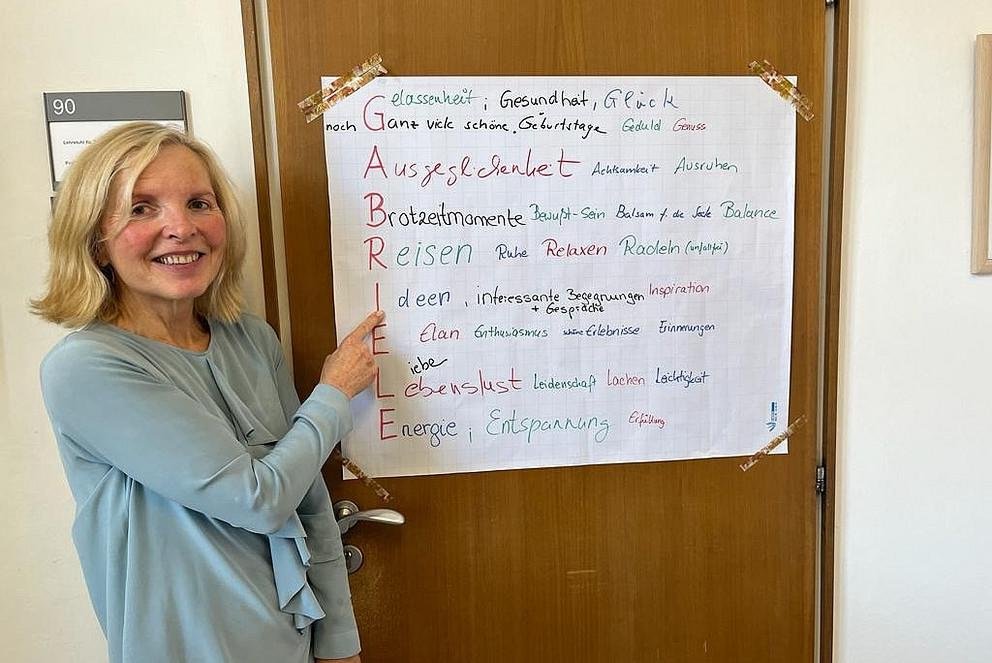 90
Gelassenheit; Gesundheit, Glück
noch Ganz viele schöne Geburtstage Geduld Genuss
Ausgeglichenheit Achtsamkeit Ausruhen
Brotzeitmomente Bewußt-Sein Balsam f. die Seele Balance
Reisen Ruhe Relaxen Radeln (unfallfrei)
Ideen, interessante Begegnungen Inspiration
+ Gespräche
Elan Enthusiasmus schöne Erlebnisse Erinnerungen
iebe
Lebenslust Leidenschaft Lachen Leichtigkeit
Energie; Entspannung Erfüllung